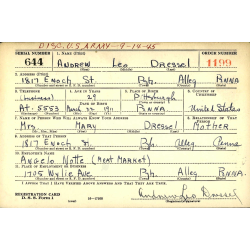 DISC. U.S. ARMY - 9-14-45
SERIAL NUMBER 1. NAME (Print) ORDER NUMBER
644 ANDREW LEO DRESSEL 1199
2. ADDRESS (Print)
1817 ENOCH ST. Pgh. Alleg PNNA.
3. TELEPHONE 4. AGE IN YEARS 5. PLACE OF BIRTH 6. COUNTRY OF CITIZENSHIP
(business) 29 Pittsburgh
DATE OF BIRTH
At. 5553 1911 PNNA. United States
7. NAME OF PERSON WHO WILL ALWAYS KNOW YOUR ADDRESS 8. RELATIONSHIP OF THAT PERSON
Mrs. MARY DRESSEL MOTHER
9. ADDRESS OF THAT PERSON
1817 ENOCH St. Pgh. Alleg Penna
10. EMPLOYER'S NAME
ANGELO NOTTE (MEAT MARKET)
11. PLACE OF EMPLOYMENT OR BUSINESS
1705 WYLIE AVE Pgh. Alleg PNNA.
I AFFIRM THAT I HAVE VERIFIED ABOVE ANSWERS AND THAT THEY ARE TRUE.
REGISTRATION CARD
D. S. S. FORM 1 Andrew Leo Dressel